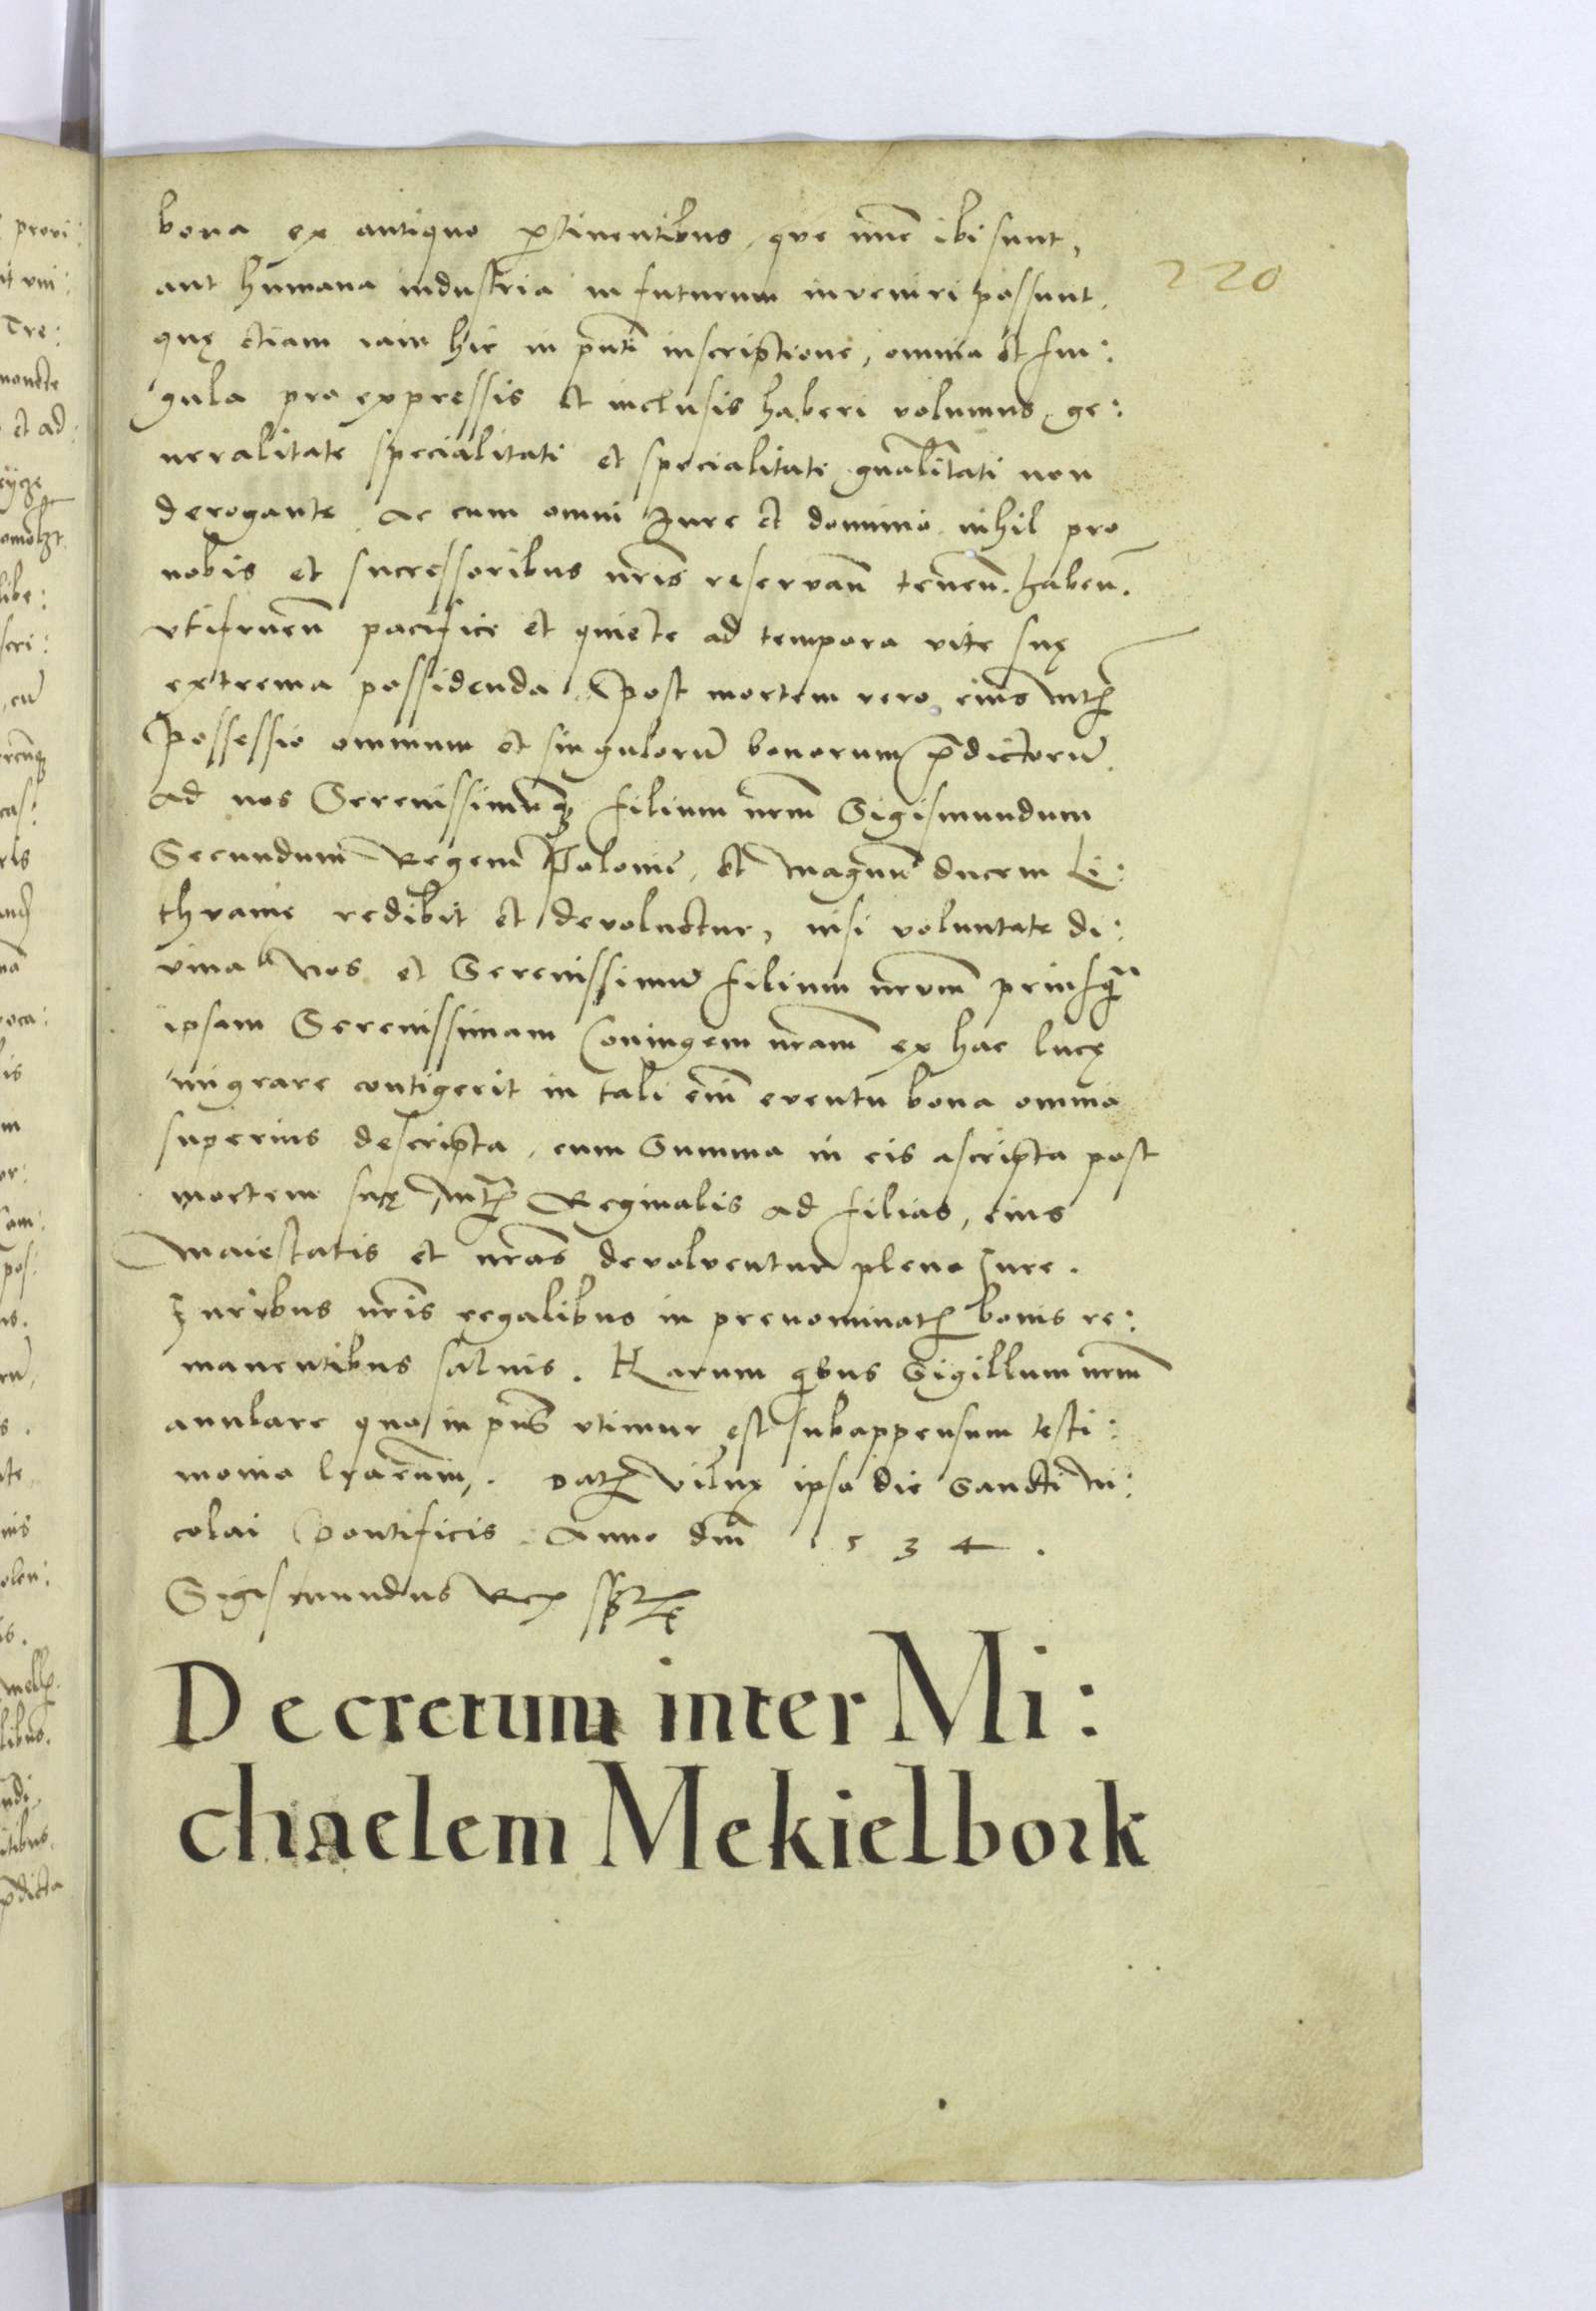 220
bona ex antiquo ꝑtinentibus, que nũc ibi sunt,
aut humana industria in futurum inveniri possunt.
quę etiam iam hic in pñti inscriptione, omnia et sin:
gula pro expressis et inclusis haberi volumus, ge:
neralitate specialitati et specialitate gñalitati non
derogante. Ac cum omni Iure et dominio nihil pro
nobis et successoribus nr̃is reservañ teneñ. habeñ.
vtifrueñ pacifice et quiete ad tempora vite suę
extrema possidenda. Post mortem vero eius Mtꝭ
Possessio omnium et singulorũ bonorum p̃dictorũ
ad nos Serenissimũqꝫ filium nr̃m Sigismundum
Secundum Regem Polonie, et Magnũ ducem Li:
thvanie redibit et devoluetur, nisi voluntate di:
vina Nos et Serenissimũ filium nrvm̃ priusq̃
ipsam Serenissimam Coniugem nr̃am ex hac lucę
migrare contigerit in tali em̃ eventu bona omnia
superius descripta, cum Summa in eis ascripta post
mortem suę Mtꝭ Reginalis ad filias, eius
Maiestatis et nr̃as devolventur pleno Iure.
Iuribus nr̃is regalibus in prenominatꝭ bonis re:
manentibus saluis. Harum qibus Sigillum nr̃m
annulare quo in pñs vtimur est subappensum testi:
monio lr̃arum,. Datꝭ Vilnę ipso die Sancti Ni:
colai Pontificis. Anno dnĩ 1534.
Sigismundus Rex
Decretum inter Mi:
chaelem Mekielbork